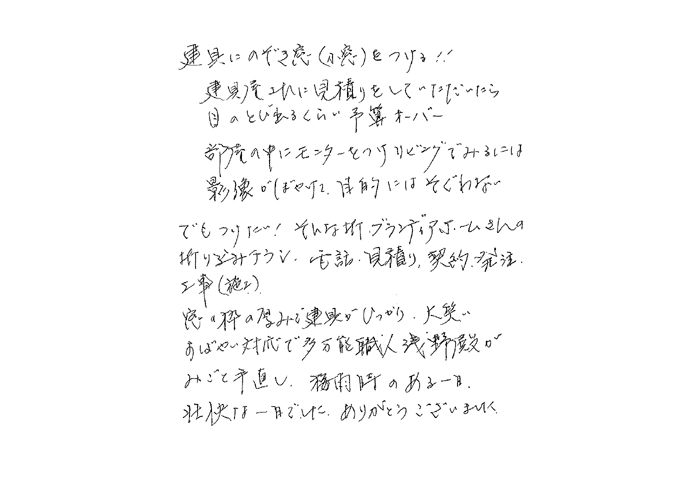 建具にのぞき窓（小窓）をつける!!
建具屋さんに見積りをしていただいたら
目のとび出るくらい予算オーバー
部屋の中にモニターをつけリビングでみるには
影像がぼやけて、目的にはそぐわない
でもつけたい！そんな折、ブランディアホームさんの
折り込みチラシ、電話、見積り、契約、発注、
工事（施工）
窓の枠の厚みで建具がひっかり、大笑い
すばやい対応で多万能職人浅野殿が
みごと手直し、梅雨時のある一日、
壮快な一日でした、ありがとうございました